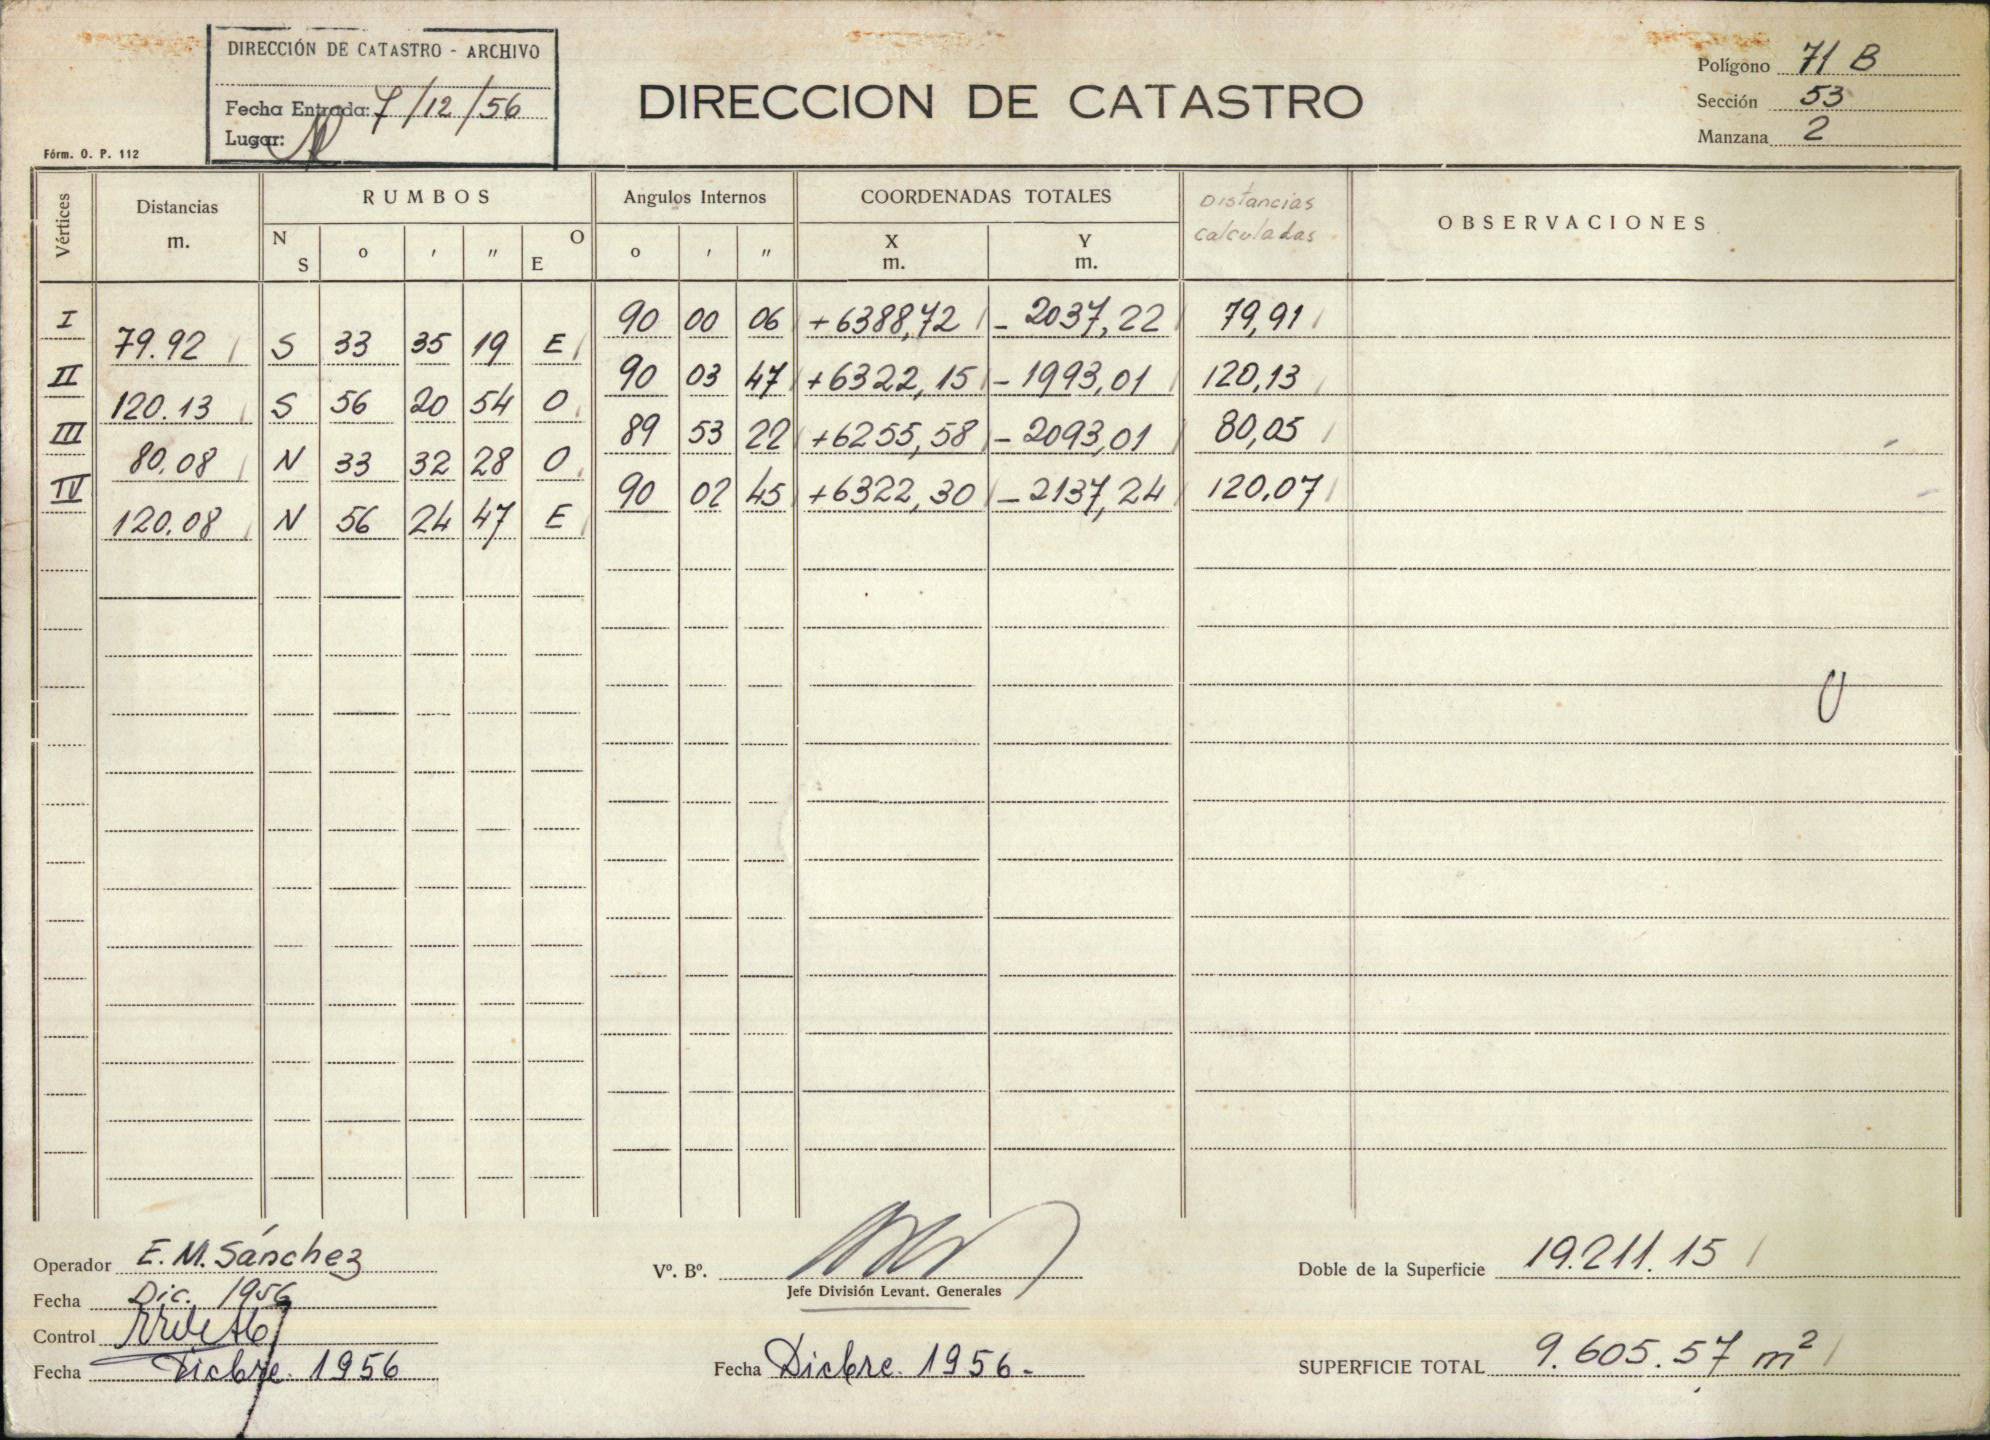 DIRECCIÓN DE CATASTRO - ARCHIVO
Fecha Entrada: 7/12/56
Lugar:
Fórm. O. P. 112
DIRECCION DE CATASTRO
Polígono 71 B
Sección 53
Manzana 2
Vértices
Distancias
m.
RUMBOS
N
S
o
'
"
O
E
Angulos Internos
o
'
"
COORDENADAS TOTALES
X
m.
Y
m.
Distancias
calculadas
OBSERVACIONES
I 90 00 06 +6388,72 -2037,22 79,91
79.92 S 33 35 19 E
II 90 03 47 +6322,15 -1993,01 120,13
120.13 S 56 20 54 O
III 89 53 22 +6255,58 -2093,01 80,05
80.08 N 33 32 28 O
IV 90 02 45 +6322,30 -2137,24 120,07
120.08 N 56 24 47 E
Operador E. M. Sánchez
Fecha Dic. 1956
Control
Fecha Dicbre. 1956
Vº. Bº.
Jefe División Levant. Generales
Fecha Dicbre. 1956-
Doble de la Superficie 19.211.15
SUPERFICIE TOTAL 9.605.57 m²